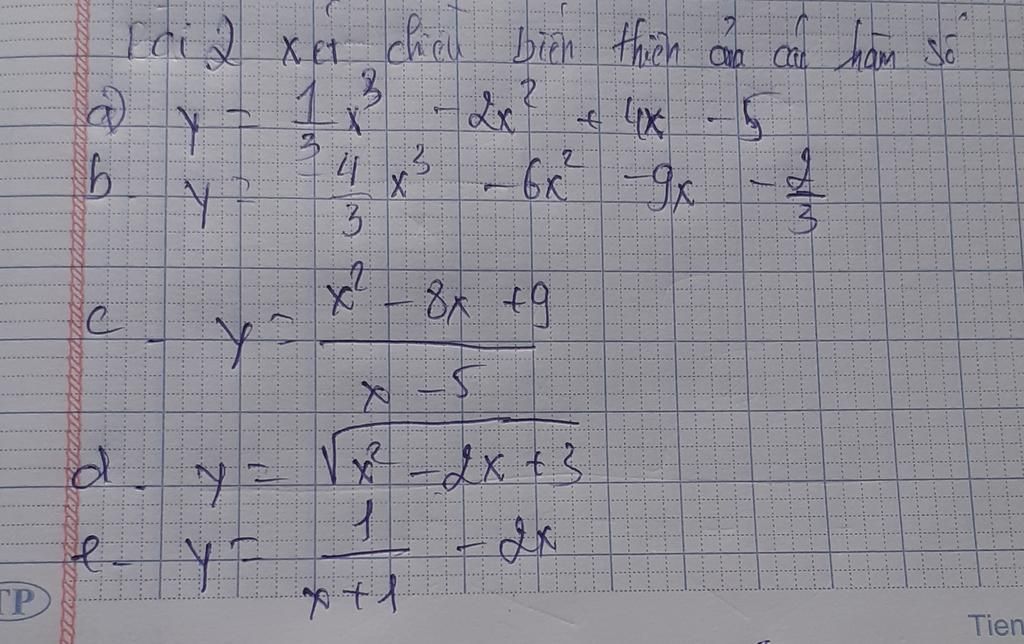 Bài 2 xét chiều biến thiên của các hàm số
a) y = 1/3 x³ - 2x² + 4x - 5
b y = 4/3 x³ - 6x² - 9x - 2/3
c - y = (x² - 8x + 9)/(x - 5)
d - y = √(x² - 2x + 3)
e - y = 1/(x + 1) - 2x
TP
Tien